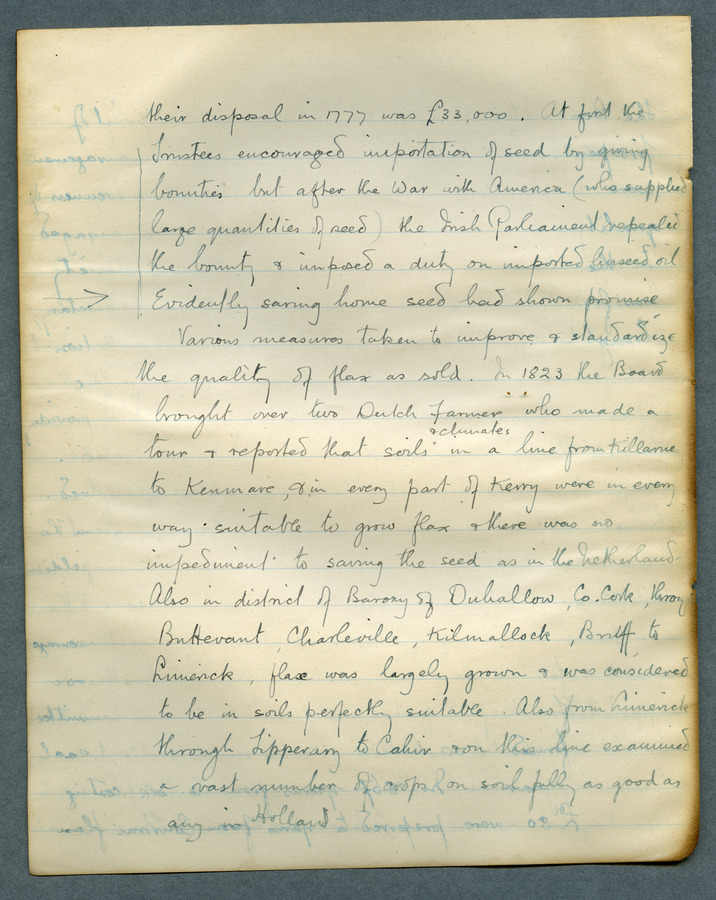 their disposal in 1777 was £33,000. At first the
Trustees encouraged importation of seed by giving
bounties but after the War with America (who supplied
large quantities of seed) the Irish Parliament repealed
the bounty & imposed a duty on imported linseed oil
Evidently saving home seed had shown promise
Various measures taken to improve & standardize
the quality of flax as sold. In 1823 the Board
brought over two Dutch "Farmers" who made a
& climates
tour & reported that soils in a line from Killarne
to Kenmare, & in every part of Kerry were in every
way suitable to grow flax & there was no
impediment to saving the seed as in the Netherland
Also in district of Barony of Duhallow, Co. Cork, throug
Buttevant, Charleville, Kilmallock, Bruff to
Limerick, flax was largely grown & was considered
to be in soils perfectly suitable. Also from Limerick
through Tipperary to Cahir & on this line examined
a vast number of crops on soil fully as good as
any in Holland